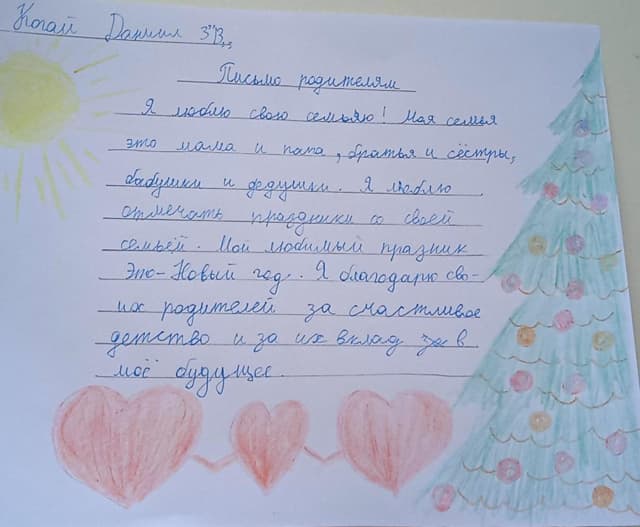 Когай Даниил 3"В"
Письмо родителям
Я люблю свою семьяю! Моя семья
это мама и папа, братья и сёстры,
бабушки и дедушки. Я люблю
отмечать праздники со своей
семьёй. Мой любимый празник
Это-Новый год. Я благодарю сво-
их родителей за счастливое
детство и за их вклад в
моё будущее.